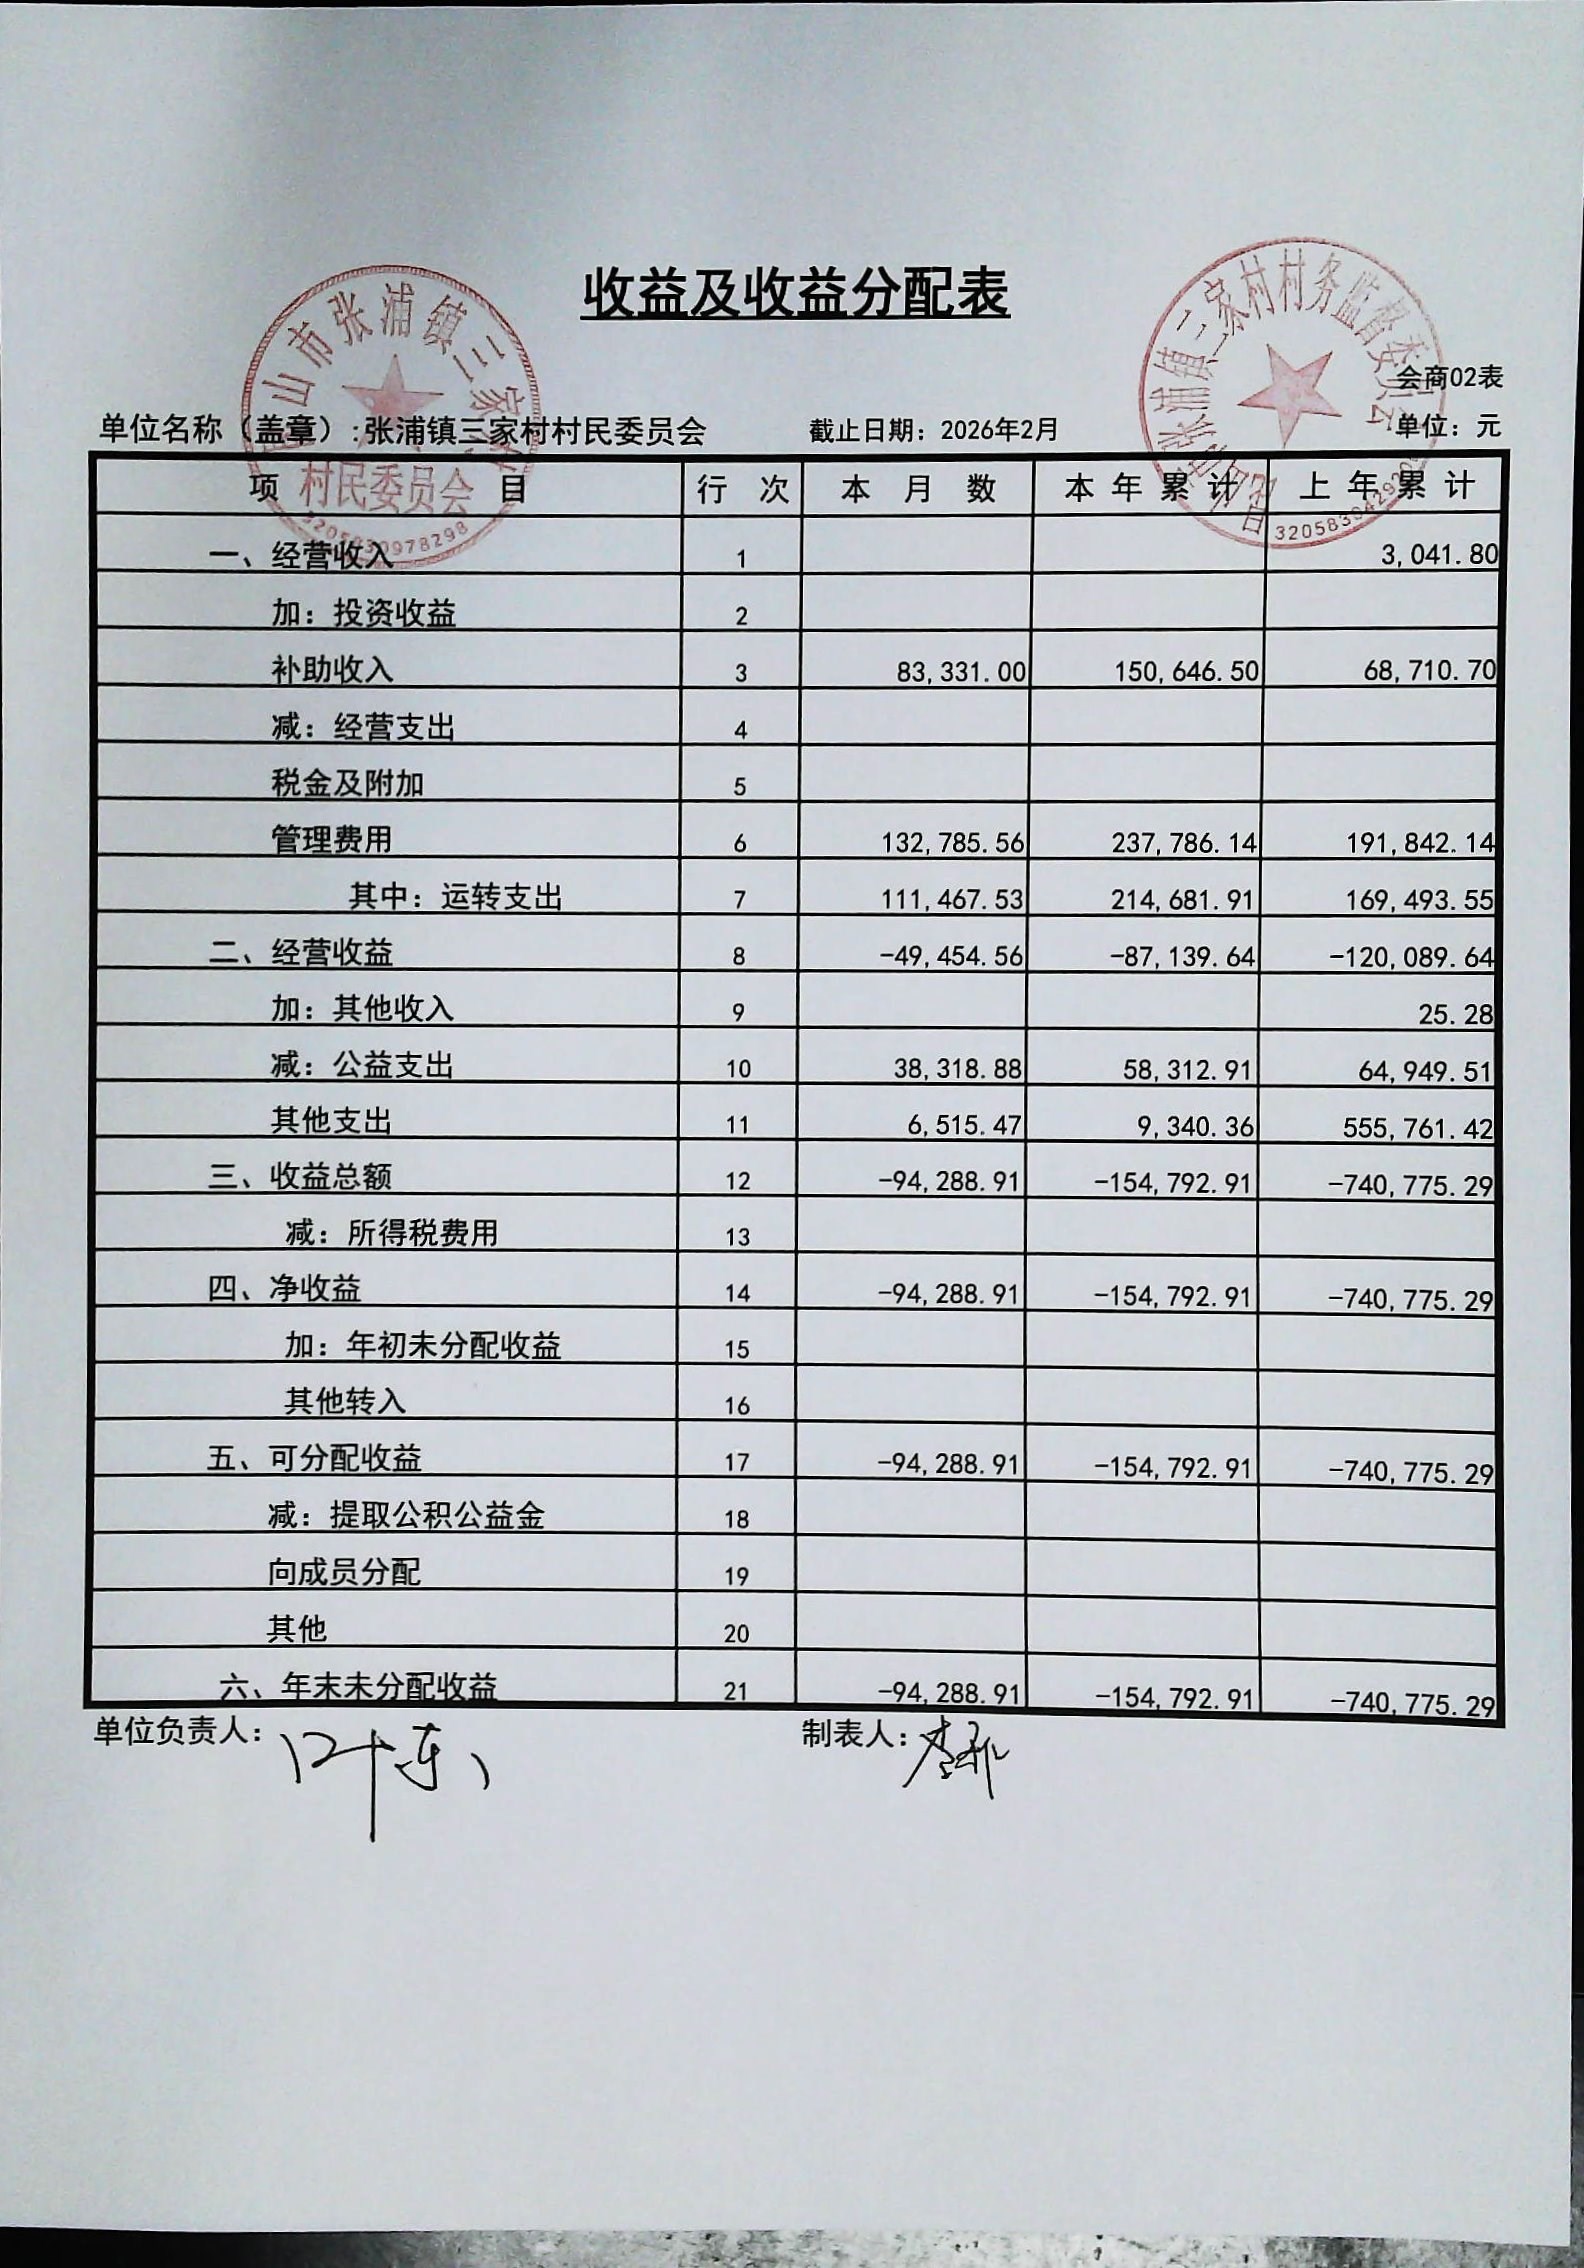 收益及收益分配表
会商02表
单位名称（盖章）:张浦镇三家村村民委员会 截止日期：2026年2月 单位：元
山市张浦镇三家村
村民委员会
3205830978298
张浦镇三家村村务监督委员会
项 目 行 次 本 月 数 本 年 累 计 上 年 累 计
一、经营收入 1 3,041.80
加：投资收益 2
补助收入 3 83,331.00 150,646.50 68,710.70
减：经营支出 4
税金及附加 5
管理费用 6 132,785.56 237,786.14 191,842.14
其中：运转支出 7 111,467.53 214,681.91 169,493.55
二、经营收益 8 -49,454.56 -87,139.64 -120,089.64
加：其他收入 9 25.28
减：公益支出 10 38,318.88 58,312.91 64,949.51
其他支出 11 6,515.47 9,340.36 555,761.42
三、收益总额 12 -94,288.91 -154,792.91 -740,775.29
减：所得税费用 13
四、净收益 14 -94,288.91 -154,792.91 -740,775.29
加：年初未分配收益 15
其他转入 16
五、可分配收益 17 -94,288.91 -154,792.91 -740,775.29
减：提取公积公益金 18
向成员分配 19
其他 20
六、年末未分配收益 21 -94,288.91 -154,792.91 -740,775.29
单位负责人： 制表人：